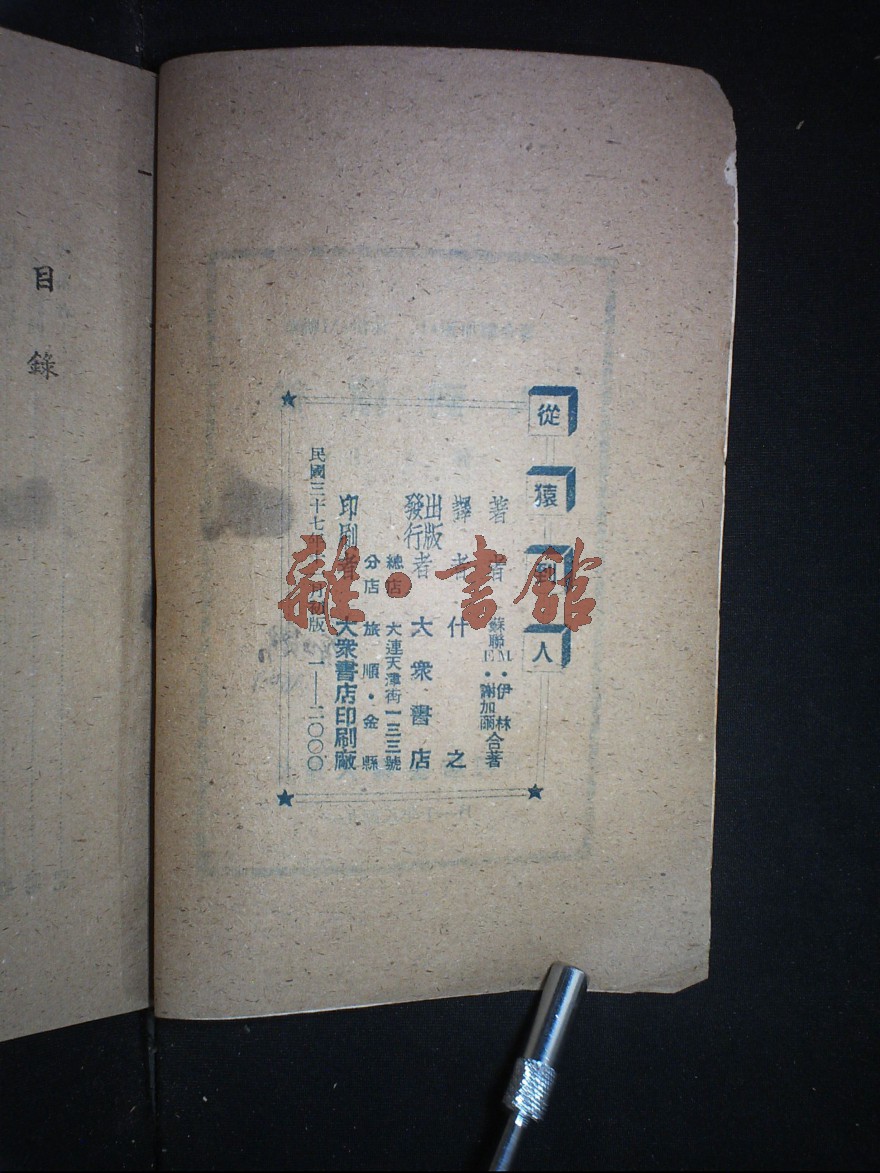 從猿到人
著者 蘇聯 M·伊林 E·謝加爾 合著
譯者 什之
出版發行者 大衆書店
總店 大連天津街一三三號
分店 旅順·金縣
印刷者 大衆書店印刷廠
民國三十七年十一月初版 1——2000
目錄
雜·書館